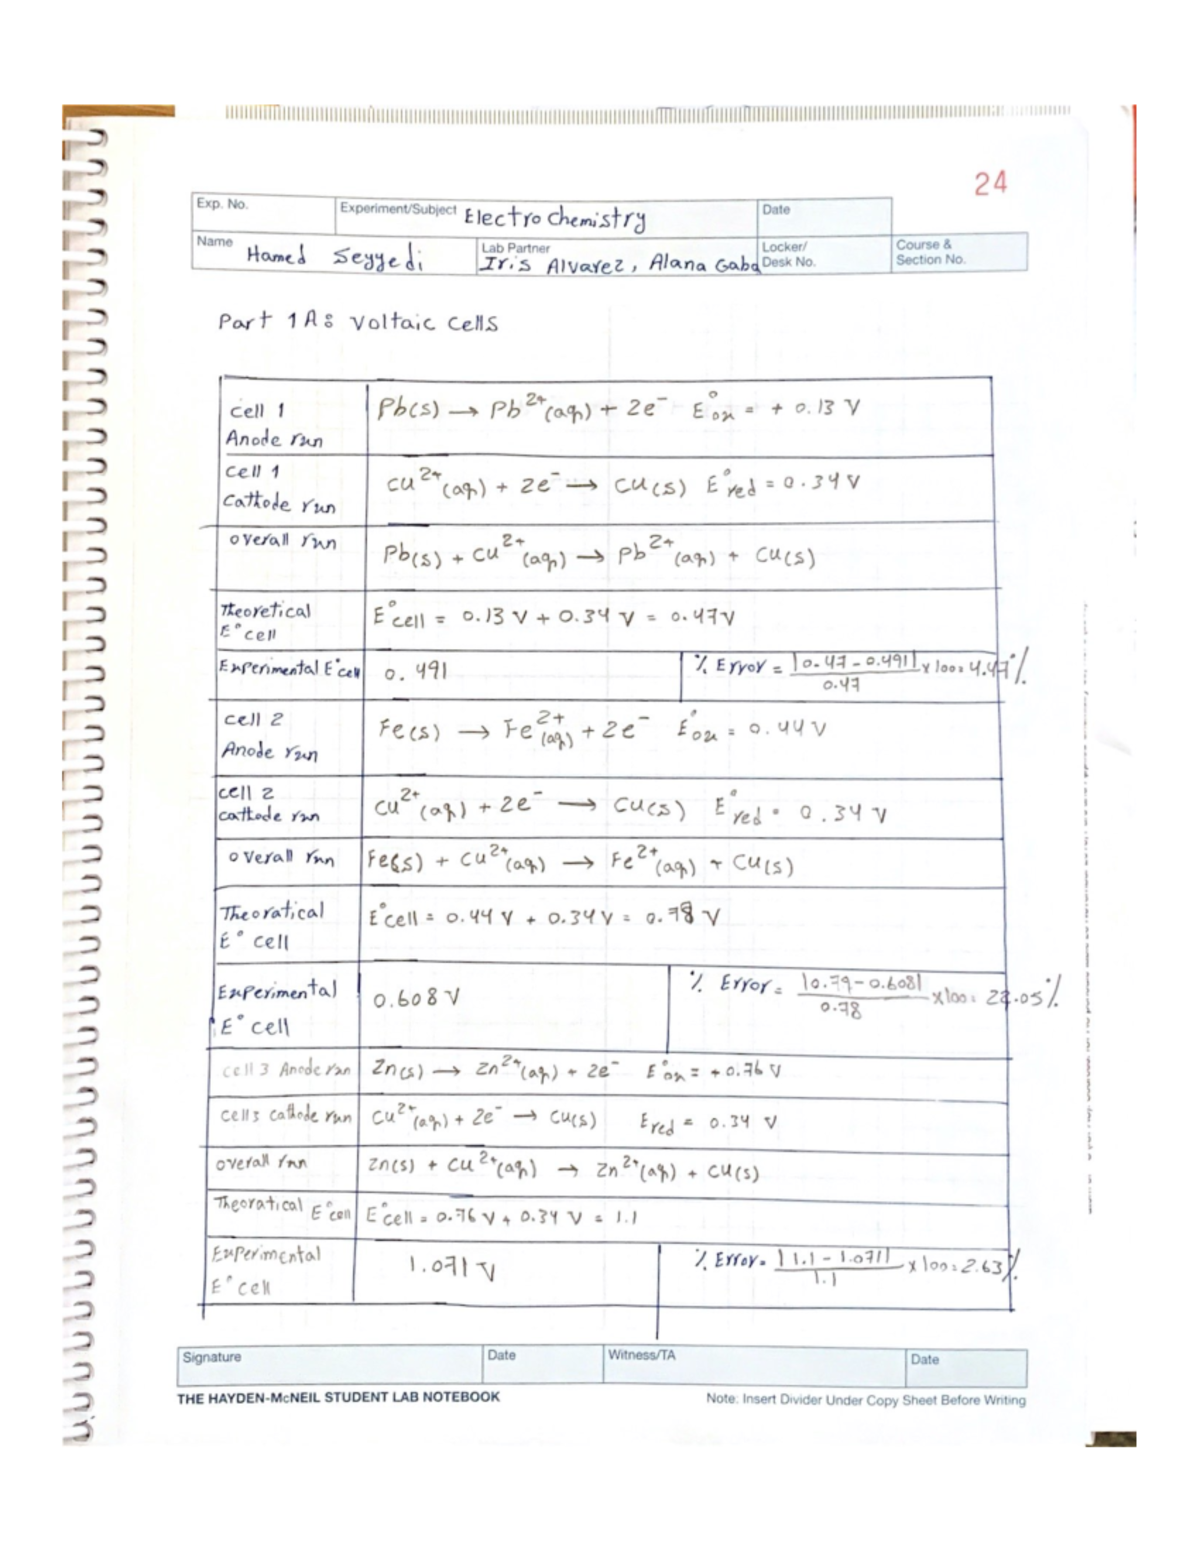 24
Exp. No.
Experiment/Subject Electrochemistry
Date
Name Hamed Seyyedi
Lab Partner Iris Alvarez, Alana Gaba
Locker/ Desk No.
Course & Section No.
Part 1A: Voltaic cells
cell 1 Anode rxn
Pb(s) → Pb²⁺(aq) + 2e⁻ E°ox = + 0.13 V
cell 1 Cathode rxn
Cu²⁺(aq) + 2e⁻ → Cu(s) E°red = 0.34 V
overall rxn
Pb(s) + Cu²⁺(aq) → Pb²⁺(aq) + Cu(s)
Theoretical E°cell
E°cell = 0.13 V + 0.34 V = 0.47V
Experimental E°cell
0.491
% Error = |0.47-0.491|/0.47 x100= 4.47%
cell 2 Anode rxn
Fe(s) → Fe²⁺(aq) + 2e⁻ E°ox = 0.44 V
cell 2 cathode rxn
Cu²⁺(aq) + 2e⁻ → Cu(s) E°red = 0.34 V
overall rxn
Fe(s) + Cu²⁺(aq) → Fe²⁺(aq) + Cu(s)
Theoratical E° cell
E°cell = 0.44 V + 0.34V = 0.78 V
Experimental E° cell
0.608 V
% Error = |0.79-0.608|/0.78 x100= 22.05%
cell 3 Anode rxn
Zn(s) → Zn²⁺(aq) + 2e⁻ E°ox = +0.76 V
cell3 cathode rxn
Cu²⁺(aq) + 2e⁻ → Cu(s) Ered = 0.34 V
overall rxn
Zn(s) + Cu²⁺(aq) → Zn²⁺(aq) + Cu(s)
Theoratical E°cell
E°cell = 0.76 V + 0.34 V = 1.1
Experimental E°cell
1.071 V
% Error= |1.1-1.071|/1.1 x100= 2.63%
Signature
Date
Witness/TA
Date
THE HAYDEN-McNEIL STUDENT LAB NOTEBOOK
Note: Insert Divider Under Copy Sheet Before Writing